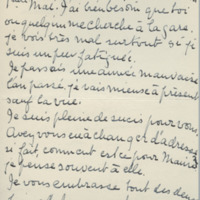 mal. J'ai eu besoin que toi
ou quelqu'un me cherche à la gare.
Je vois très mal surtout si je
suis un peu fatiguée.
Je passais une année mauvaise
l'an passé, je vais mieux à présent
sauf la vue.
Je suis pleine de soucis pour vous.
Avez vous eu à changer d'adresse
si fait, comment est-ce pour
je pense souvent à elle.
Je vous embrasse tout les deux